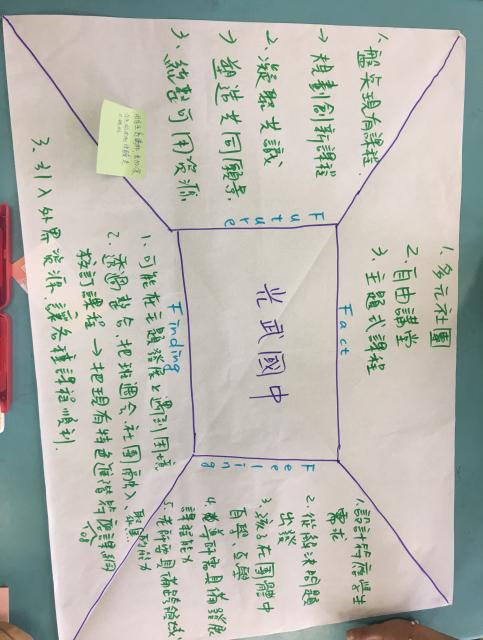 光武國中
Fact
1. 多元社團
2. 自由講堂
3. 主題式課程
Feeling
1. 設計符應學生
需求
2. 從解決問題
出發
3. 孩子在團體中
自學、互學
4. 教導師需具備發展
課程能力
5. 老師需具備跨領域
Finding
1. 可能在主題發展上遇到困境
2. 透過整合,把班週會、社團融入
校訂課程 → 把現有特色進階符應課綱
3. 引入外界資源,讓各種課程順利
Future
1. 盤點現有課程
→ 規劃創新課程
2. 凝聚共識
→ 塑造共同願景
3. 統整可用資源